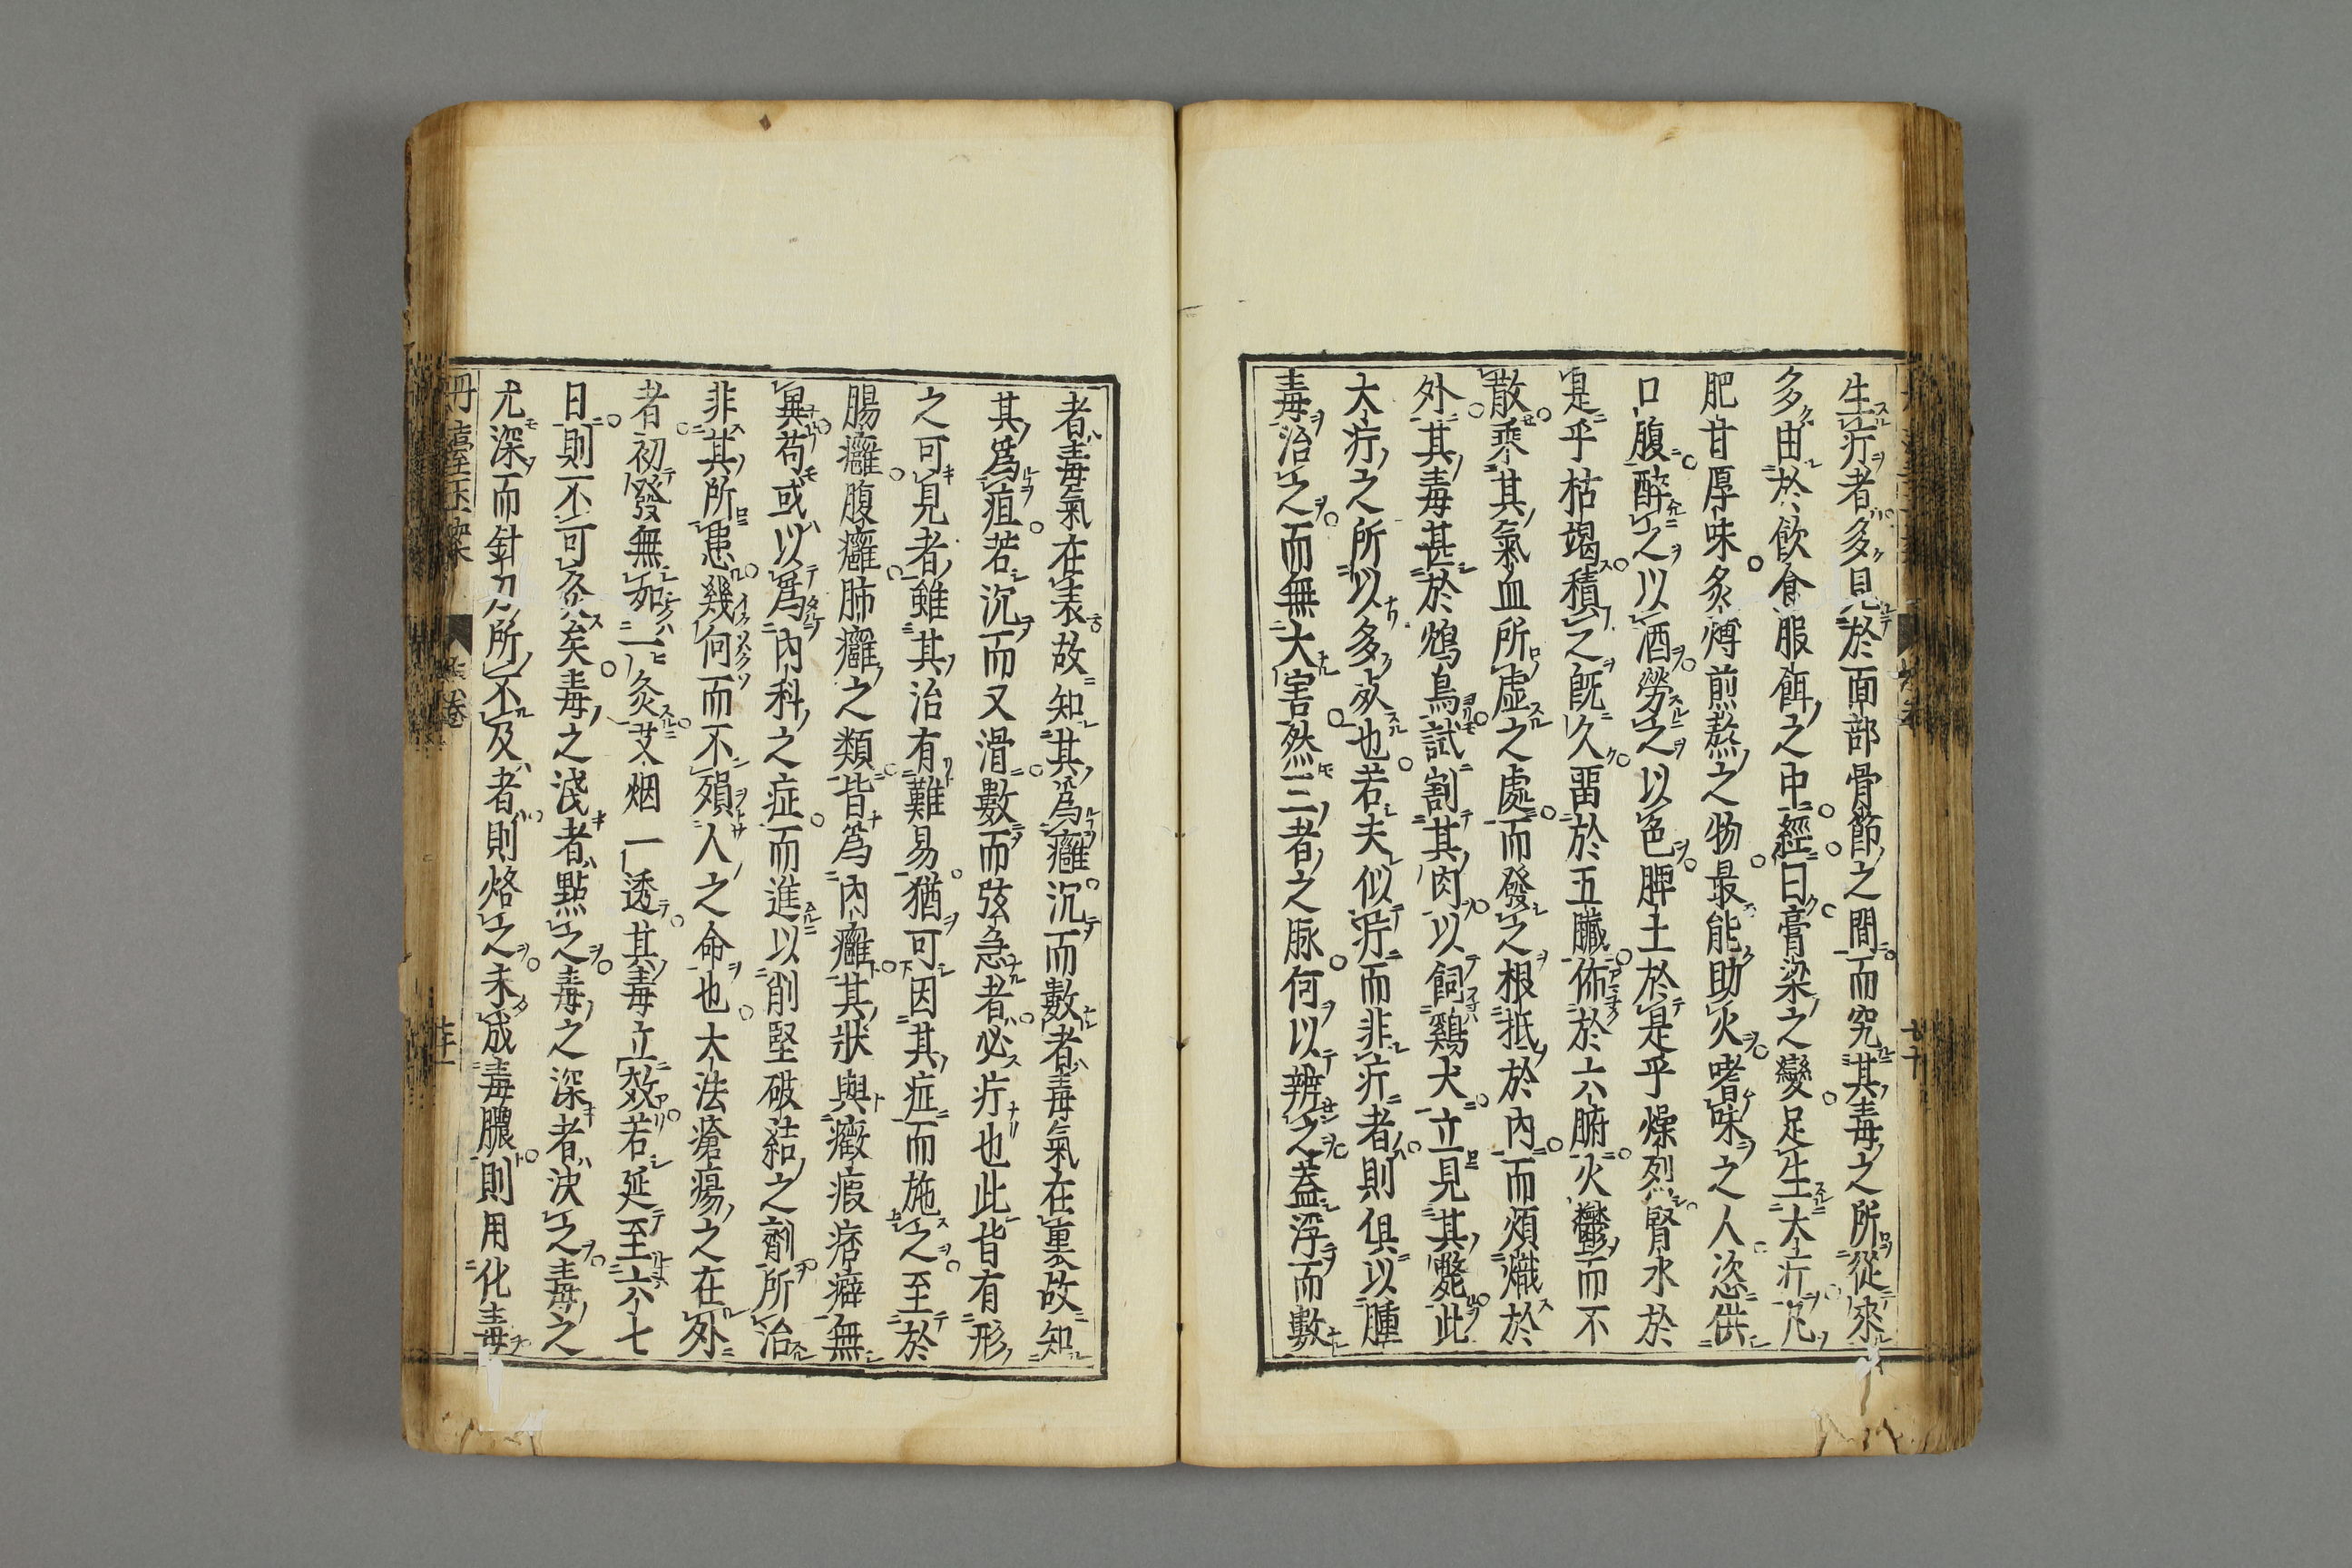 生疔者多見於面部骨節之間而究其毒之所從來
多由於飲食服餌之中經曰膏梁之變足生大疔凡
肥甘厚味炙煿煎熬之物最能助火嗜味之人恣供
口腹醉之以酒勞之以色脾土於是乎燥烈腎水於
是乎枯竭積之既久畱於五臟佈於六腑火鬱而不
散乘其氣血所虛之處而發之根抵於內而煩熾於
外其毒甚於鴆鳥試割其肉以飼鷄犬立見其斃此
大疔之所以多死也若夫似疔而非疔者則俱以腫
毒治之而無大害然三者之脉何以辨之蓋浮而數
者毒氣在表故知其為癰沉而數者毒氣在裏故知
其為疽若沉而又滑數而弦急者必疔也此皆有形
之可見者雖其治有難易猶可因其症而施之至於
腸癰腹癰肺癰之類皆為內癰其狀與癥瘕痞癖無
異苟或以為內科之症而進以削堅破結之劑所治
非其所患幾何而不殞人之命也大法瘡瘍之在外
者初發無如一灸艾烟一透其毒立效若延至六七
日則不可灸矣毒之淺者點之毒之深者決之毒之
尤深而針刀所不及者則烙之未成毒膿則用化毒
丹臺玉案 卷